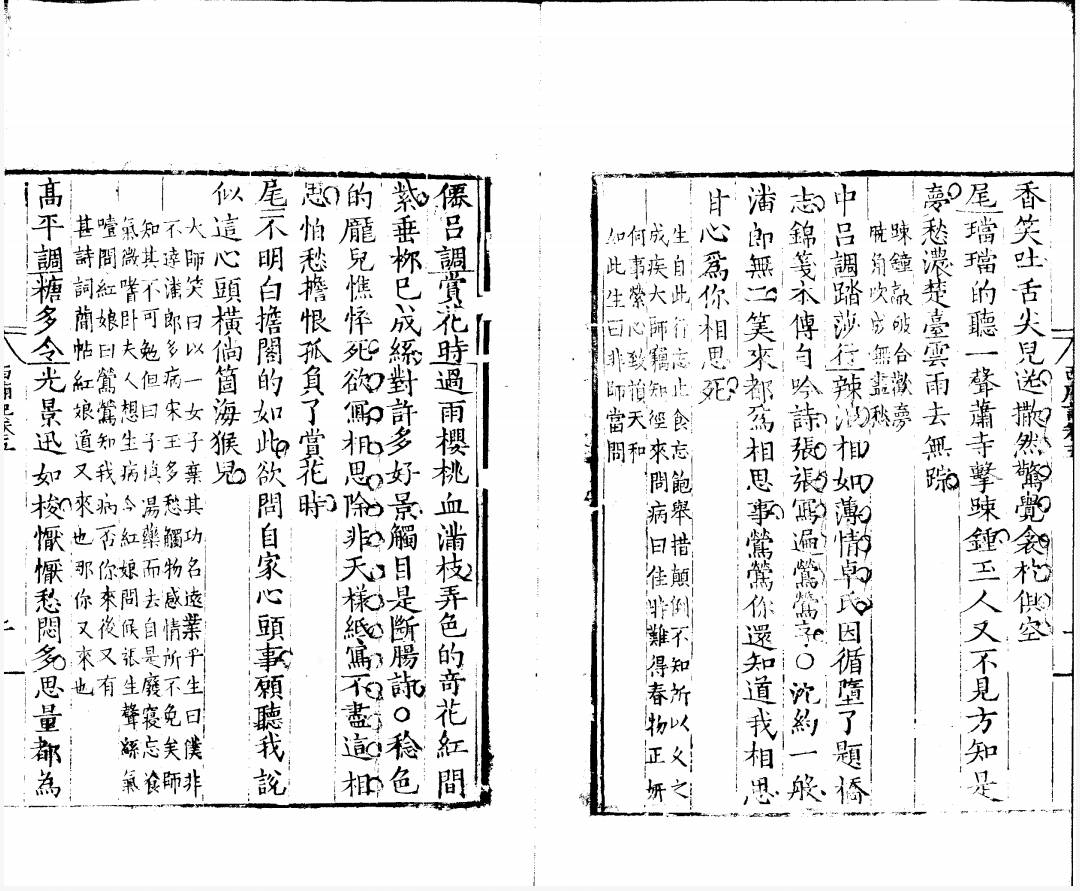 香笑吐舌尖兒送撒然驚覺衾枕俱空
尾璫璫的聽一聲蕭寺擊踈鍾玉人又不見方知是
夢愁濃楚臺雲雨去無踪
踈鐘敲破合歡夢
曉角吹成無盡愁
中呂調踏莎行辣浪相如薄情卓氏因循墮了題橋
志錦箋本傳自吟詩張張寫遍鶯鶯字○沈約一般
潘郎無二笑來都爲相思事鶯鶯你還知道我相思
甘心爲你相思死
生自此行忘止食忘飽舉措顛倒不知所以久之
成疾大師竊知經來問病曰佳時難得春物正妍
何事縈心致損天和
如此生曰非師當問
僊呂調賞花時過雨櫻桃血滿枝弄色的奇花紅間
紫垂柳已成絲對許多好景觸目是斷腸詩○稔色
的龐兒憔悴死欲寫相思除非天樣紙寫不盡這相
思怕愁擔恨孤負了賞花時
尾不明白擔閣的如此欲問自家心頭事願聽我說
似這心頭橫倘箇海猴兒
大師笑曰以一女子棄其功名遠業乎生曰僕非
不達潘郎多病宋玉多愁觸物感情所不免矣師
知其不可勉但曰子慎湯藥而去自是廢寢忘飡
氣微嗜臥夫人想生病令紅娘問候張生聲絲氣
噎問紅娘曰鶯鶯知我病否你來後又有
甚詩詞簡帖紅娘道又來也那你又來也
高平調糖多令光景迅如梭懨懨愁悶多思量都為